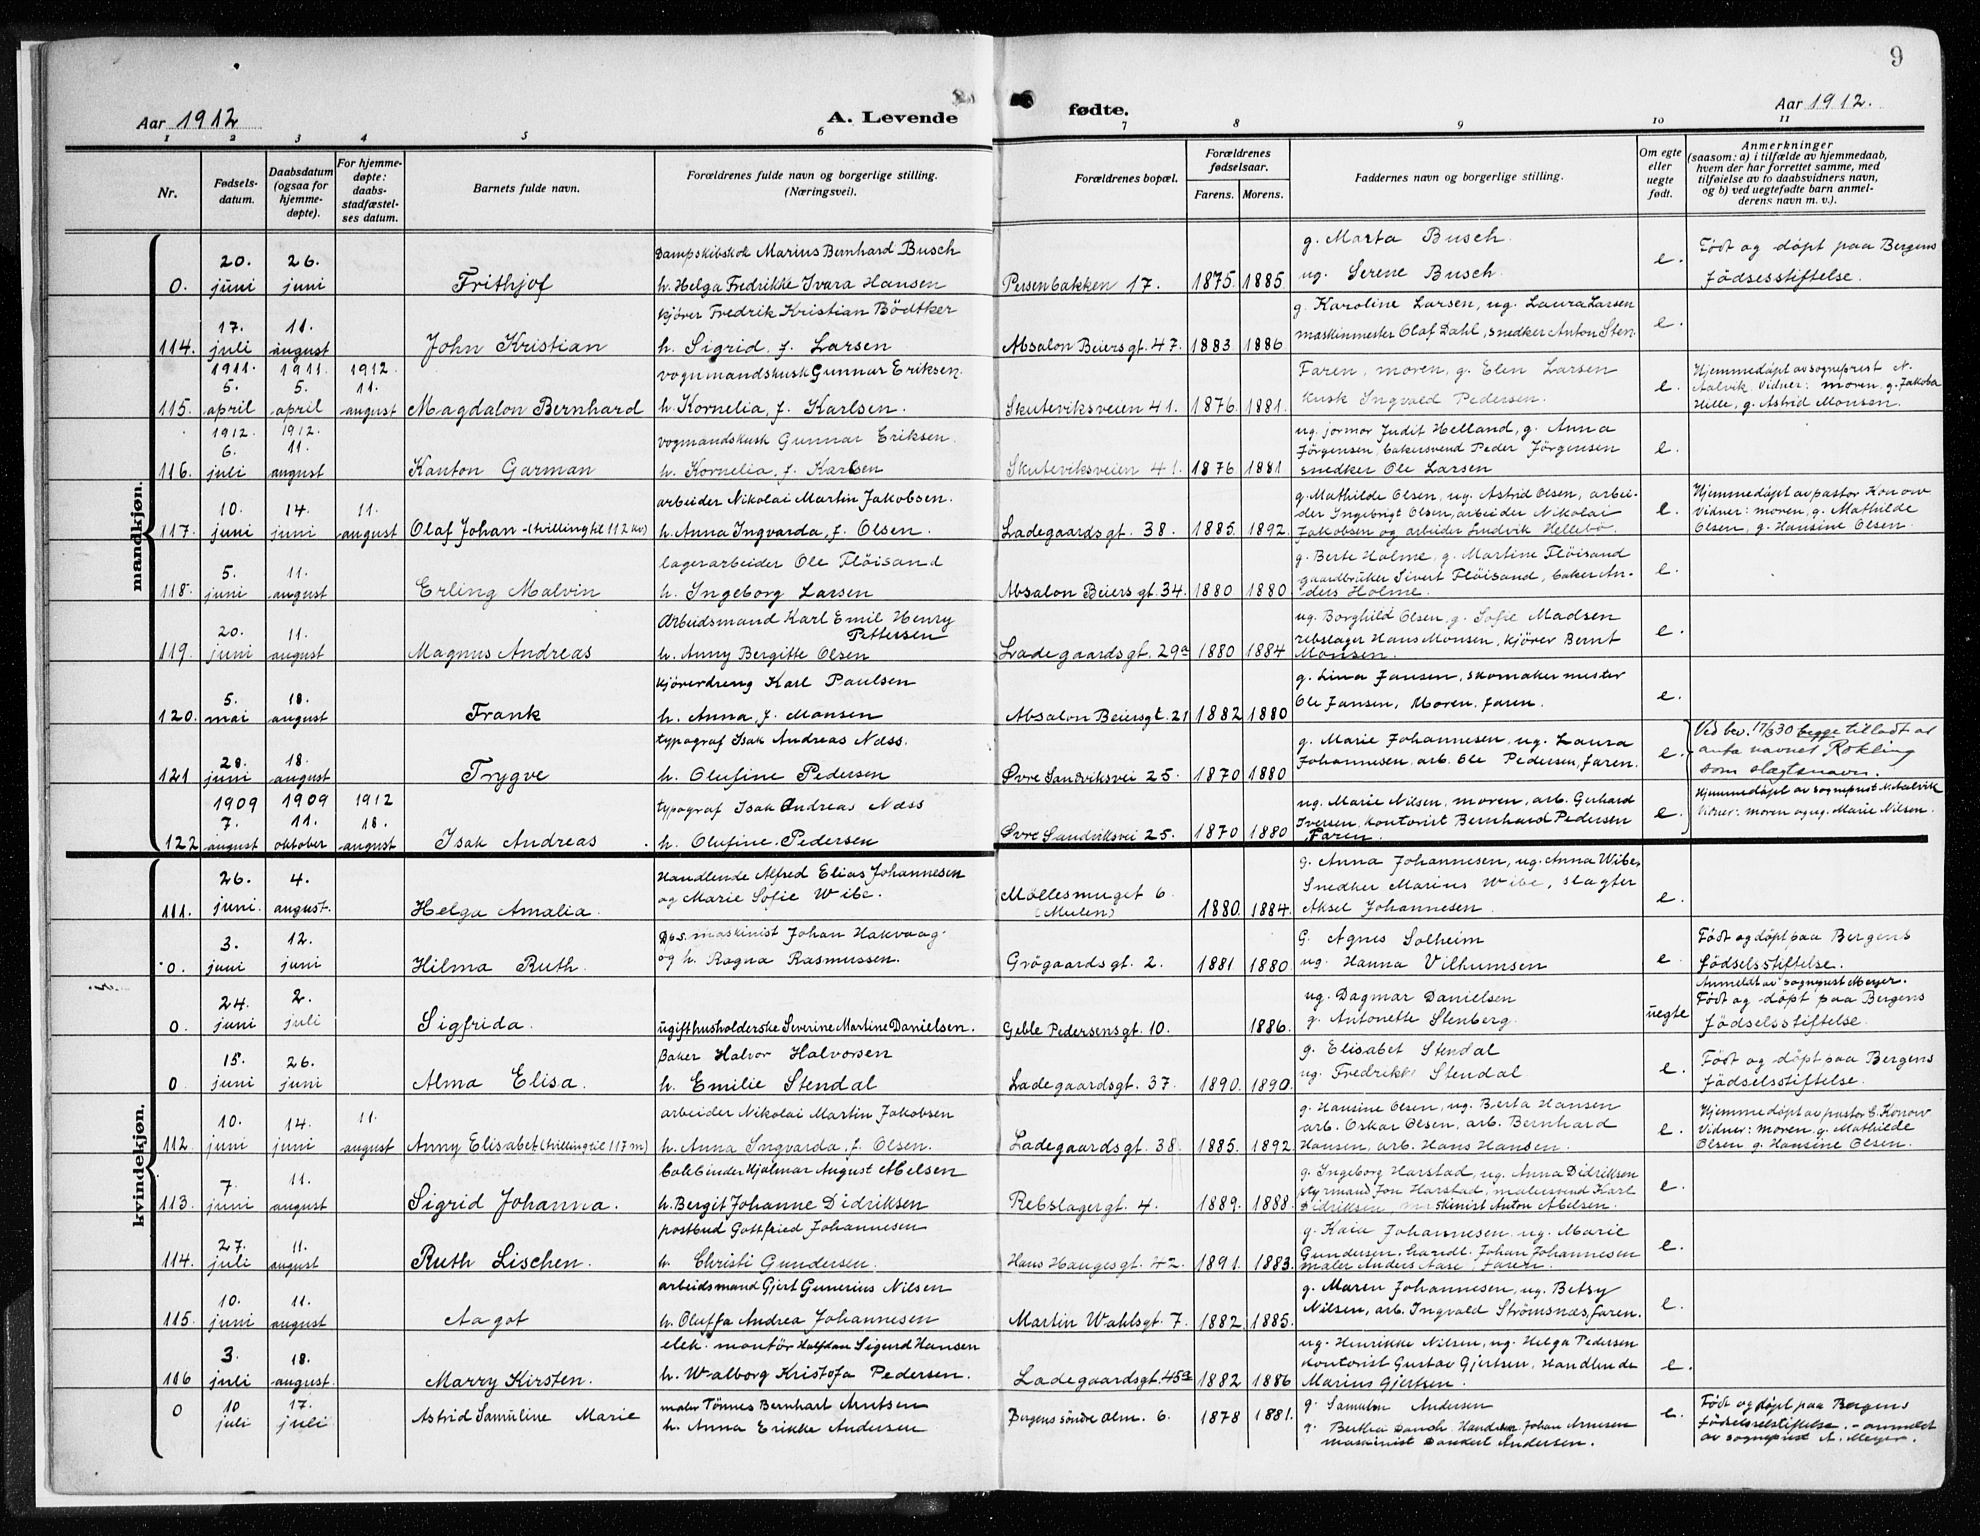 9
Aar 1912
A. Levende
fødte.
Aar 1912.
1 2 3 4 5 6 7 8 9 10 11
Nr.
Fødsels-
datum.
Daabsdatum
(ogsaa for
hjemme-
døpte).
For hjemme-
døpte:
daabs-
stadfæstel-
ses datum.
Barnets fulde navn.
Forældrenes fulde navn og borgerlige stilling.
(Næringsvei).
Forældrenes bopæl.
Forældrenes
fødselsaar.
Farens. Morens.
Faddernes navn og borgerlige stilling.
Om egte
eller
uegte
født.
Anmerkninger
(saasom: a) i tilfælde av hjemmedaab,
hvem der har forrettet samme, med
tilføielse av to daabsvidners navn,
og b) ved uegtefødte barn anmel-
derens navn m. v.).
mandkjøn.
0. 20. juni 26. juni Frithjof
Dampskibskok Marius Bernhard Busch
h. Helga Fredrikke Ivara Hansen
Persenbakken 17. 1875. 1885.
g. Marta Busch.
ug. Serene Busch.
e.
Født og døpt paa Bergens
fødsesstiftelse.
114. 17. juli 11. august John Kristian
kjører Fredrik Kristian Bödtker
h. Sigrid, f. Larsen
Absalon Beiersgt. 47. 1883 1886
g. Karoline Larsen, ug. Laura Larsen
maskinmester Olaf Dahl, snedker Anton Sten.
e.
115. 1911. 5. april 1911. 5. april 1912. 11. august Magdalon Bernhard
vognmandskusk Gunnar Eriksen.
h. Kornelia, f. Karlsen.
Skuteviksveien 41. 1876. 1881.
Faren, moren, g. Elen Larsen
kusk Ingvald Pedersen.
e.
Hjemmedøpt av sogneprest N.
Aalvik. Vidner: moren, g. Jakoba
Hille, g. Astrid Monsen.
116. 1912. 6. juli 1912. 11. august Kanton Garman
vogmandskusk Gunnar Eriksen.
h. Kornelia, f. Karlsen
Skuteviksveien 41. 1876 1881
ug. jormor Judit Helland, g. Anna
Jörgensen, bakersvend Peder Jörgensen
snedker Ole Larsen
e.
117. 10. juni 14. juni 11. august Olaf Johan - (tvilling til 112 kv)
arbeider Nikolai Martin Jakobsen.
h. Anna Ingvarda, f. Olsen.
Ladegaardsgt. 38. 1885. 1892.
g. Mathilde Olsen, ug. Astrid Olsen, arbei-
der Ingebrigt Olsen, arbeider Nikolai
Jakobsen og arbeider Ludvik Hellebö
e.
Hjemmedøpt av pastor Konow
Vidner: moren, g. Mathilde
Olsen, g. Hansine Olsen.
118. 5. juni 11. august Erling Malvin
lagerarbeider Ole Flöisand
h. Ingeborg Larsen
Absalon Beiers gt. 34. 1880 1880
g. Berte Holme, g. Martine Flöisand
gaardbruker Sivert Flöisand, baker An-
ders Holme.
e.
119. 20. juni 11. august Magnus Andreas
Arbeidsmand Karl Emil Henry
Pettersen
h. Anny Bergitte Olsen
Ladegaardsgt. 29a 1880 1884
ug. Borghild Olsen, g. Sofie Madsen
rebslager Hans Monsen, kjörer Bernt
Monsen.
e.
120. 5. mai 18. august Frank
kjörerdreng Karl Paulsen
h. Anna, f. Monsen
Absalon Beiersgt. 21 1882 1880
g. Lina Jansen, skomakermester
Ole Jansen, Moren. faren.
e.
121 28. juni 18. august Trygve
typograf Isak Andreas Næss.
h. Olufine Pedersen
Øvre Sandviksvei 25. 1870 1880
g. Marie Johannesen, ug. Laura
Johannesen, arb. Ole Pedersen, faren.
e.
Ved bev. 17/3 30 begge tilladt at
anta navnet Rokling
som slægtsnavn.
122 1909 7. august 1909 11. oktober 1912 18. august Isak Andreas
typograf Isak Andreas Næss
h. Olufine Pedersen
Øvre Sandviksvei 25. 1870 1880
ug. Marie Nilsen, moren, arb. Gerhard
Iversen, kontorist Bernhard Pedersen
Faren.
e.
Hjemmedøpt av sogneprest N. Aalvik
Vidner: moren og ug. Marie Nilsen.
kvindekjøn.
111. 26. juni. 4. august. Helga Amalia.
Handlende Alfred Elias Johannesen
og Marie Sofie Wibe.
Møllesmuget 6
(Mulen)
1880. 1884.
g. Anna Johannesen, ug. Anna Wibe,
Snedker Marius Wibe, slagter
Aksel Johannesen.
e.
0. 3. juni 12. juni Hilma Ruth.
Dbs. maskinist Johan Hakvaag.
og h. Ragna Rasmussen.
Grögaardsgt. 2. 1881 1880
G. Agnes Solheim
ug. Hanna Vilhumsen
e.
Født og døpt paa Bergens
fødselsstiftelse.
0. 24. juni 2. juli Sigfrida.
ugift husholderske Severine Martine Danielsen.
Geble Pedersensgt. 10. 1886.
ug. Dagmar Danielsen
g. Antonette Stenberg.
uegte
Anmeldt av sogneprest Meyer.
Født og døpt paa Bergens
fødselsstiftelse.
0 15. juni 26. juni Alma Elisa.
Baker Halvor Halvorsen
h. Emilie Stendal
Ladegaardsgt. 37. 1890. 1890.
g. Elisabet Stendal
ug. Fredrikke Stendal
e.
Født og døpt paa Bergens
fødselsstiftelse.
112. 10. juni 14. juni 11. august Anny Elisabet (tvilling til 117 m)
arbeider Nikolai Martin Jakobsen
h. Anna Ingvarda, f. Olsen.
Ladegaardsgt. 38. 1885. 1892
g. Hansine Olsen, ug. Berta Hansen
arb. Oskar Olsen, arb. Bernhard
Hansen, arb. Hans Hansen.
e.
Hjemmedøpt av pastor C. Konow
Vidner: moren, g. Mathilde
Olsen g. Hansine Olsen.
113. 7. juni 11. august Sigrid Johanna.
Hjalmar August Abelsen
h. Bergit Johanne Didriksen
Rebslagergt. 4. 1889. 1888.
g. Ingeborg Harstad, ug. Anna Didriksen
styrmand Jon Harstad, malersvend Karl
Didriksen, maskinist Anton Abelsen.
e.
114. 27. juli 11. august Ruth Lischen.
postbud Gottfried Johannesen
h. Christi Gundersen.
Hans Haugesgt. 42. 1891. 1883.
g. Kaia Johannesen, ug. Marie
Gundersen, handl. Johan Johannesen
maler Anders Aase, Faren.
e.
115. 10. juni 11. august Aagot
arbeidsmand Gjert Gunerius Nilsen
h. Oluffa Andrea Johannesen
Martin Wahlsgt. 7. 1882. 1885.
g. Maren Johannesen, ug. Betsy
Nilsen, arb. Ingvald Strömsnæs, faren.
e.
116 3. juli 18. august. Marry Kirsten.
elek. montör Halfdan Sigurd Hansen
h. Walborg Kristofa Pedersen.
Ladegaardsgt. 45a 1882 1886
ug. Henrikke Nilsen, ug. Helga Pedersen
kontorist Gustav Gjertsen, Handlende
Marius Gjertsen.
e.
0 10 juli 17. juli Astrid Samuline Marie
maler Tönnes Bernhart Arntsen
h. Anna Erikke Andersen
Bergens söndre alm. 6. 1878 1881.
g. Andersen
Johan Arntsen
maskinist Andersen.
e.
Født og døpt paa Bergens
fødselsstiftelse. - anmeldt
av sogneprest A. Meyer.